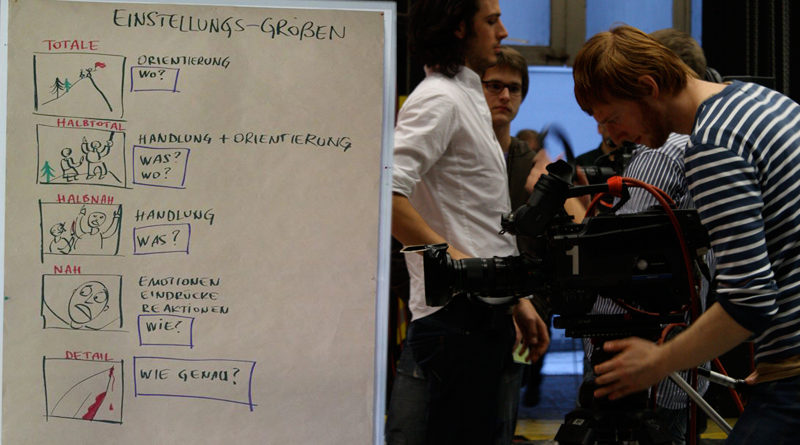 EINSTELLUNGS-GRÖßEN
TOTALE
ORIENTIERUNG
WO?
HALBTOTAL
HANDLUNG + ORIENTIERUNG
WAS?
WO?
HALBNAH
HANDLUNG
WAS?
NAH
EMOTIONEN
EINDRÜCKE
REAKTIONEN
WIE?
DETAIL
WIE GENAU?
1